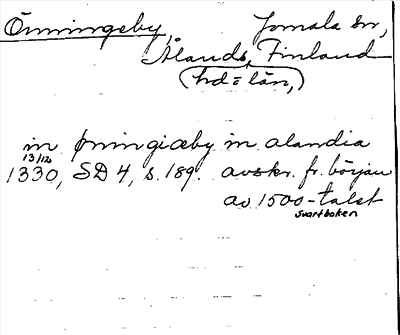 Önningeby, Jomala sn,
Ålands, Finland
(hd = län,)
in ønningiæby in alandia
13/12
1330, SD 4, s. 189. avskr. fr. början
av 1500-talet
svartboken